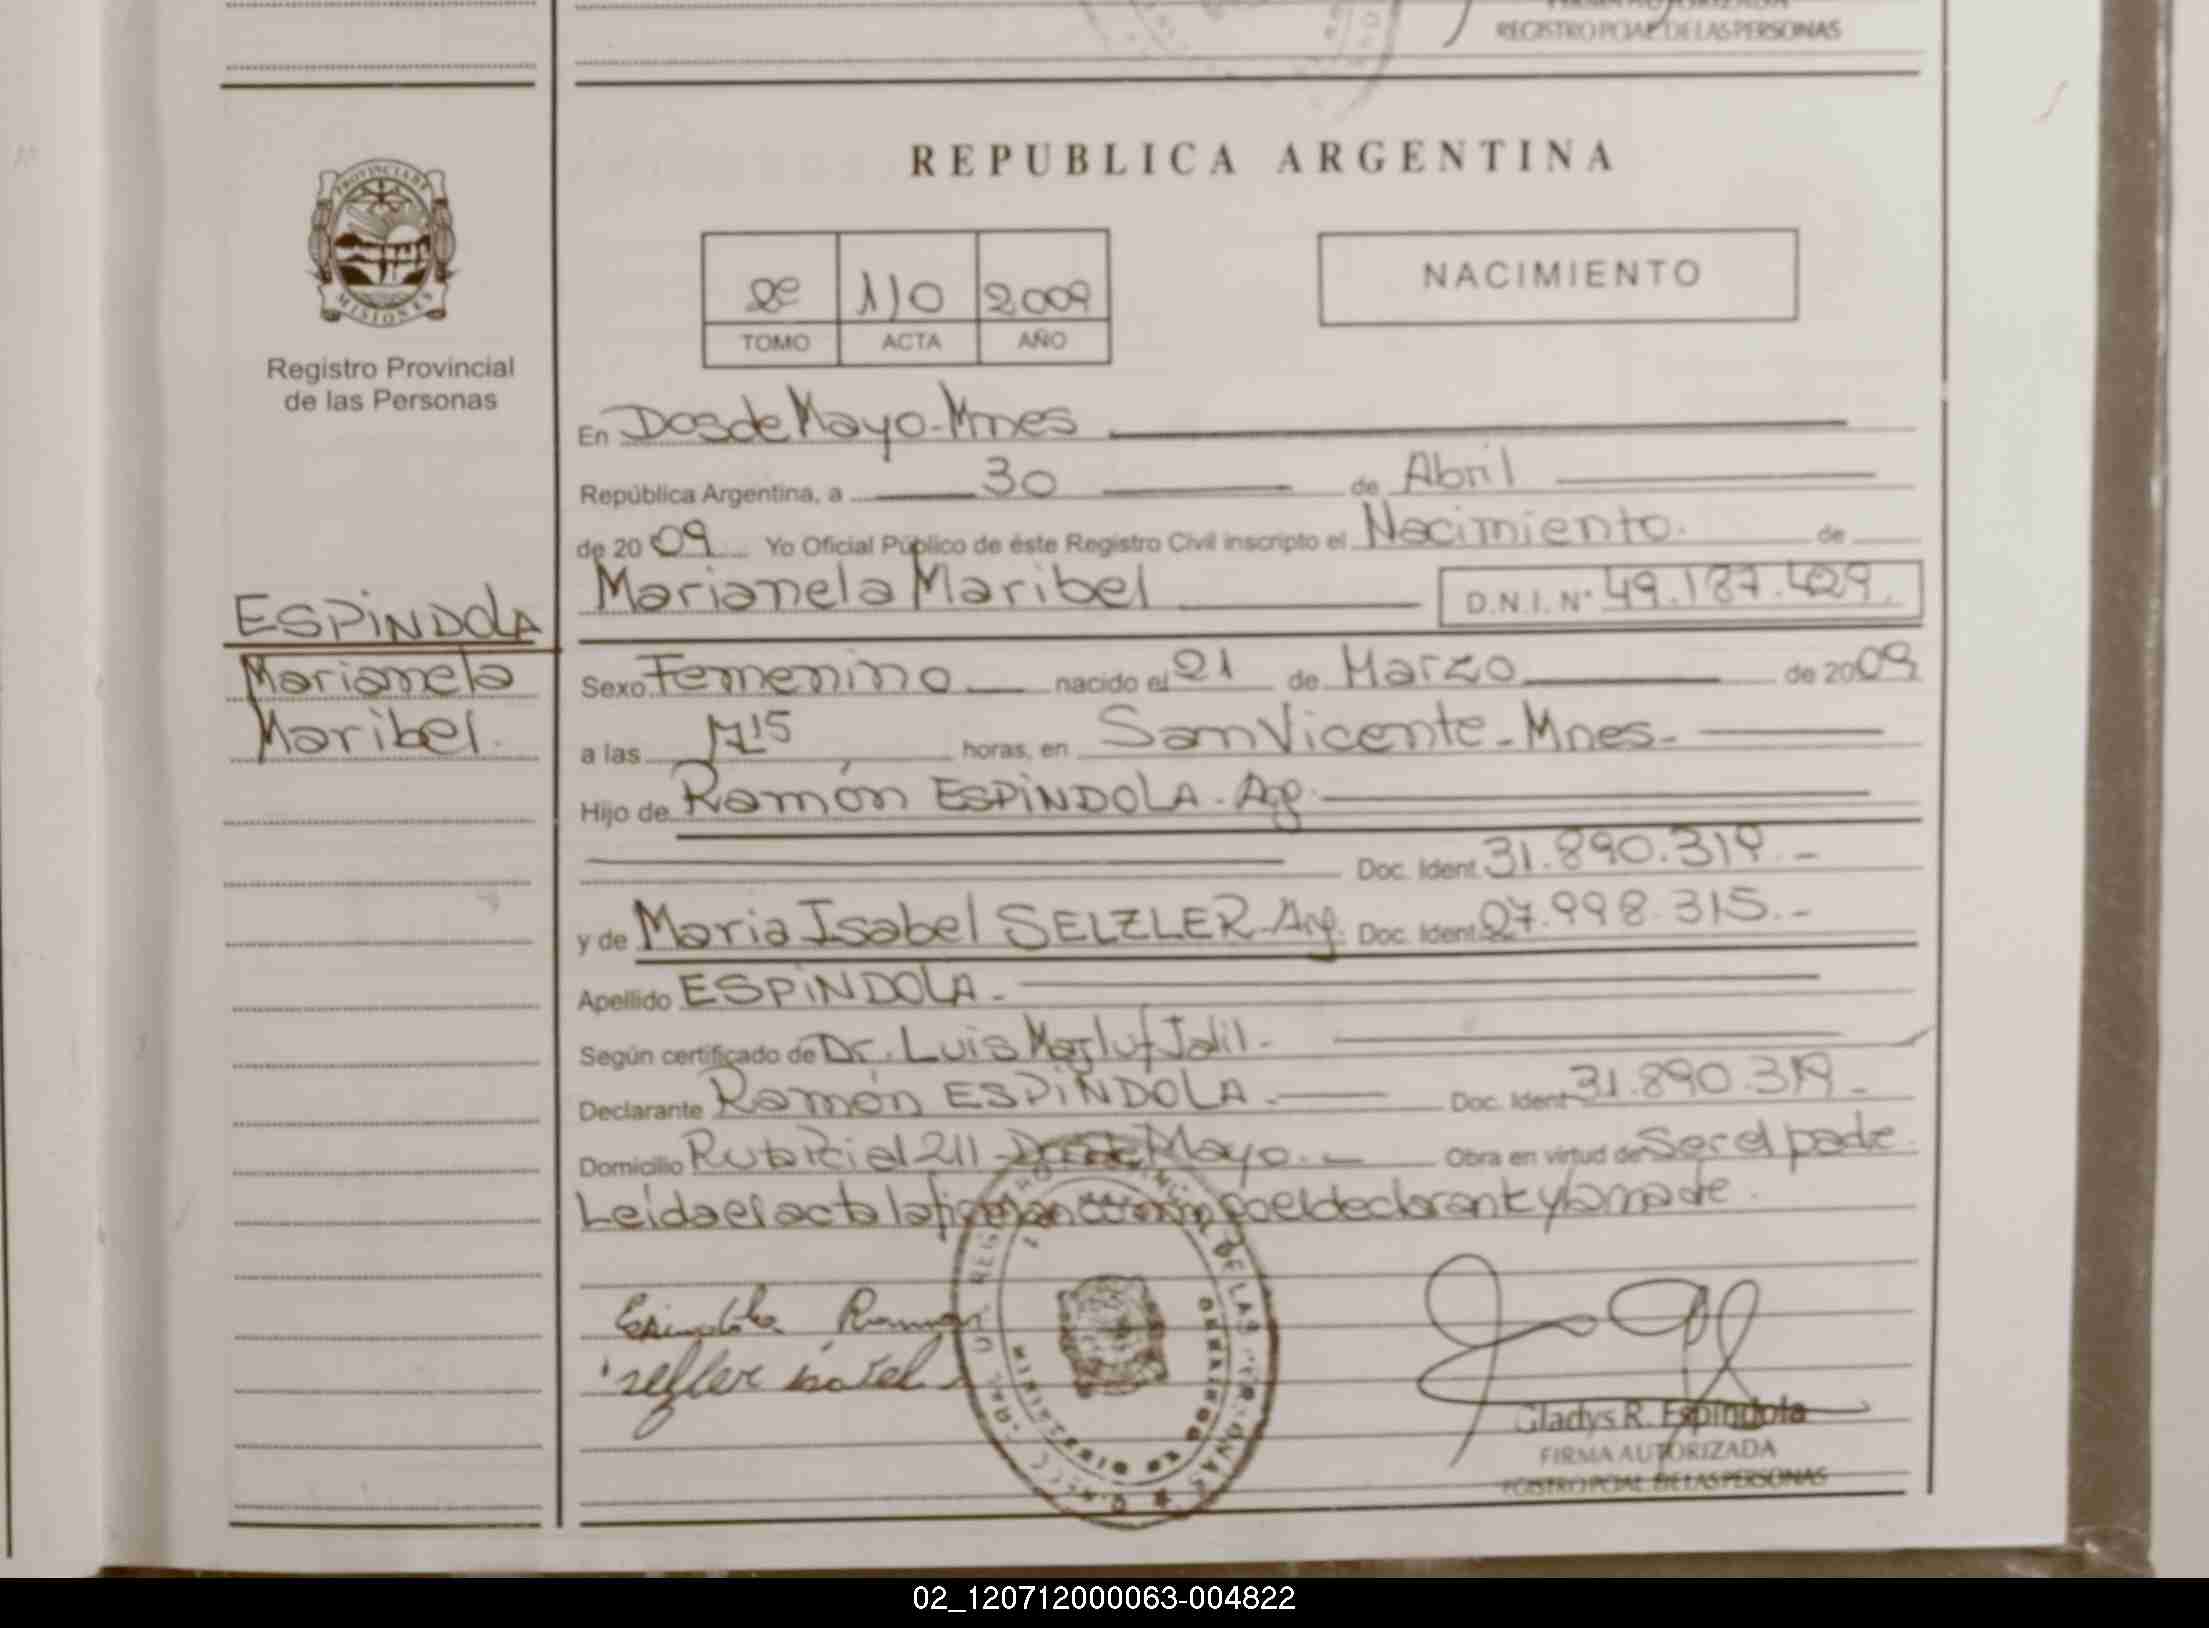 REGISTRO PCIAL DE LAS PERSONAS
PROVINCIA DE
MISIONES
Registro Provincial
de las Personas
REPUBLICA ARGENTINA
2º 110 2009
TOMO ACTA AÑO
NACIMIENTO
En Dos de Mayo-Mnes
República Argentina, a 30 de Abril
de 2009 Yo Oficial Público de éste Registro Civil inscripto el Nacimiento. de
Marianela Maribel D.N.I. Nº 49.187.429.
ESPiNDOLA
Marianela
Maribel.
Sexo Femenino nacido el 21 de Marzo de 2009
a las horas, en San Vicente-Mnes-
Hijo de Ramón ESPiNDOLA-Arg.
Doc. Ident. 31.890.319.-
y de Maria Isabel SELZLER-Arg. Doc. Ident. 27.998.315.-
Apellido ESPiNDOLA-
Según certificado de Dr. Luis Jalil-
Declarante Ramón ESPiNDOLA- Doc. Ident 31.890.319-
Domicilio Ruta Pcial 211 Dos de Mayo.- Obra en virtud de Ser el padre.
Leida el acta la firman el declarante y la madre.
Espindola Ramon
Isabel
Gladys R. Espindola
FIRMA AUTORIZADA
REGISTRO PCIAL. DE LAS PERSONAS
02_120712000063-004822